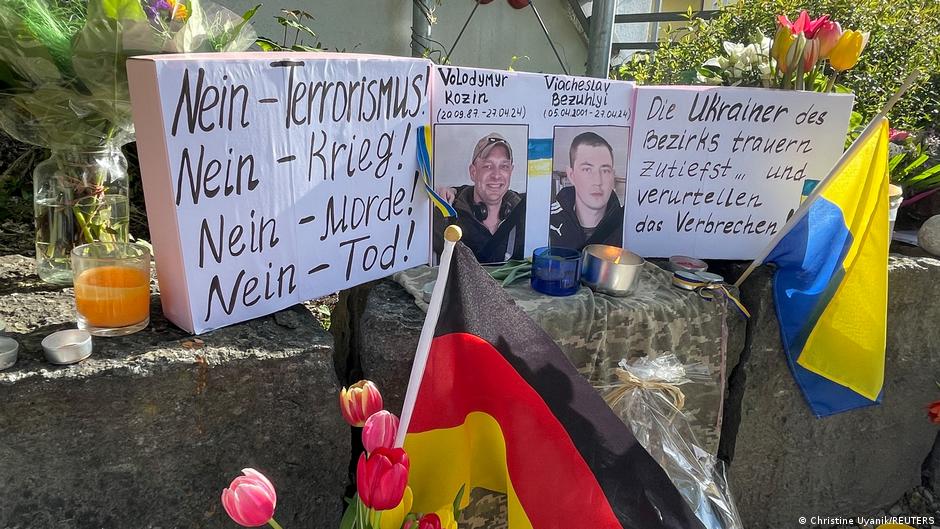 Nein - Terrorismus!
Nein - Krieg!
Nein - Morde!
Nein - Tod!
Volodymyr
Kozin
(20.09.87.-27.04.24)
Viacheslav
Bezuhlyi
(05.04.2001-27.04.24)
Die Ukrainer des
Bezirks trauern
zutiefst... und
verurteilen
das Verbrechen!
© Christine Uyanik/REUTERS